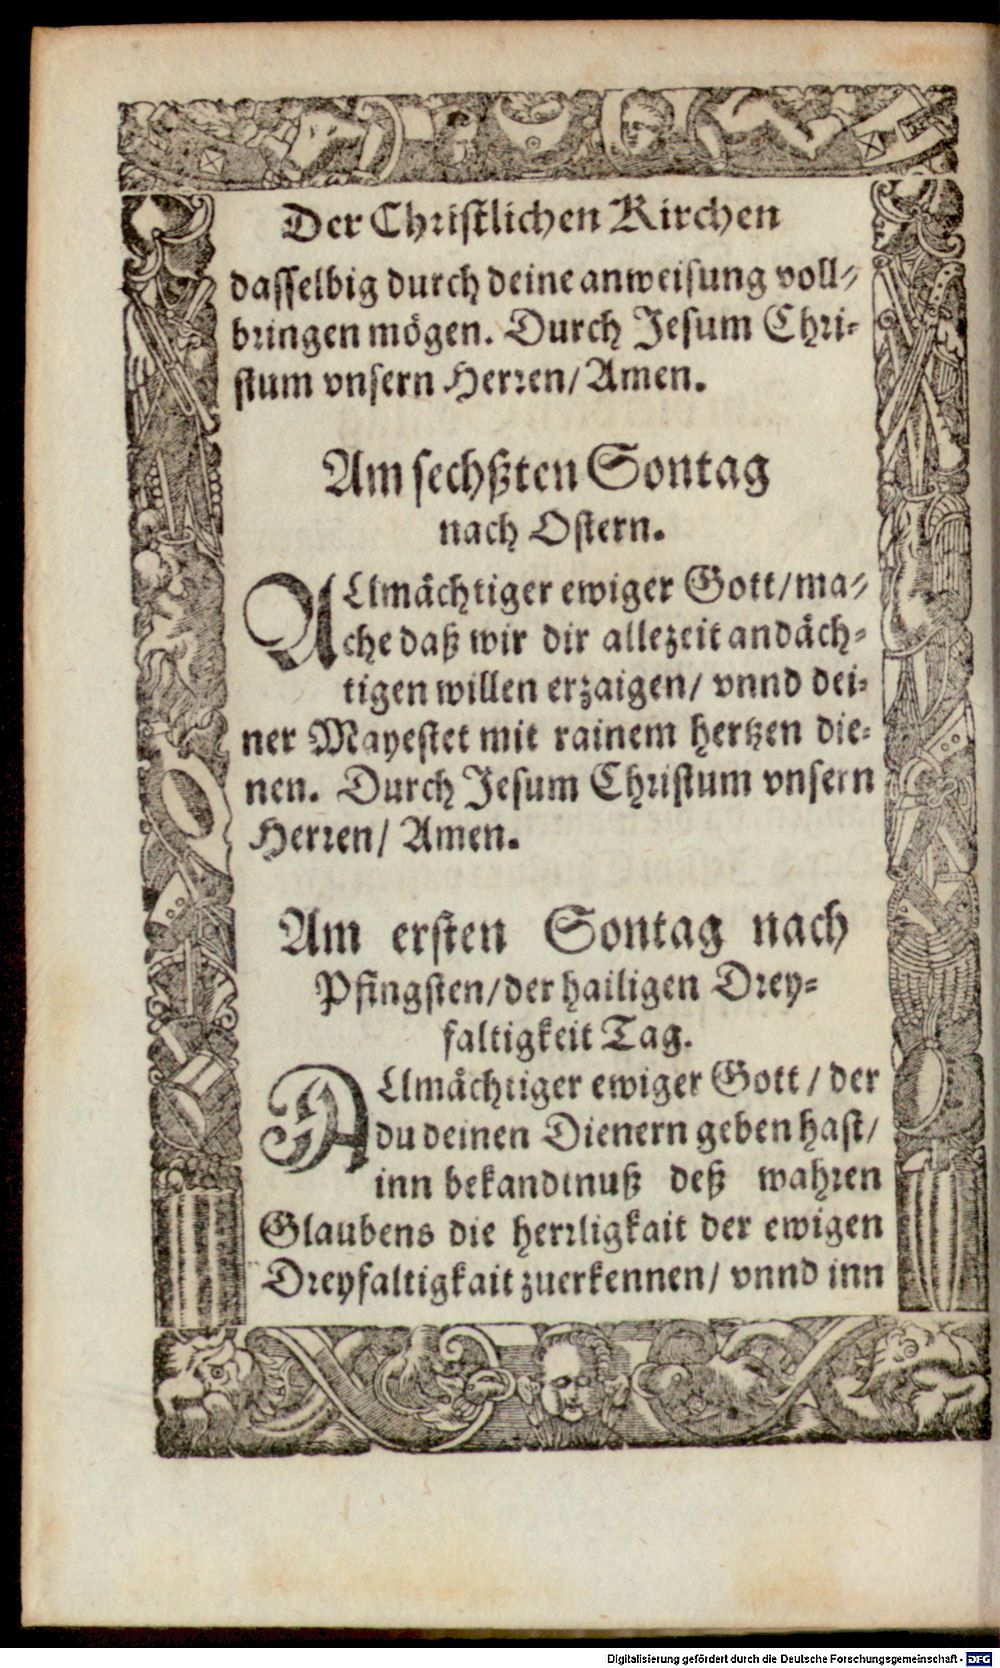 Der Christlichen Kirchen
dasselbig durch deine anweisung voll⸗
bringen mögen. Durch Jesum Chri⸗
stum vnsern Herren/ Amen.
Am sechßten Sontag
nach Ostern.
ALlmächtiger ewiger Gott/ ma⸗
che daß wir dir allezeit andäch⸗
tigen willen erzaigen/ vnnd dei⸗
ner Mayestet mit rainem hertzen die⸗
nen. Durch Jesum Christum vnsern
Herren/ Amen.
Am ersten Sontag nach
Pfingsten/ der hailigen Drey⸗
faltigkeit Tag.
ALlmächtiger ewiger Gott/ der
du deinen Dienern geben hast/
inn bekandtnuß deß wahren
Glaubens die herrligkait der ewigen
Dreyfaltigkait zuerkennen/ vnnd inn
Digitalisierung gefördert durch die Deutsche Forschungsgemeinschaft - DFG